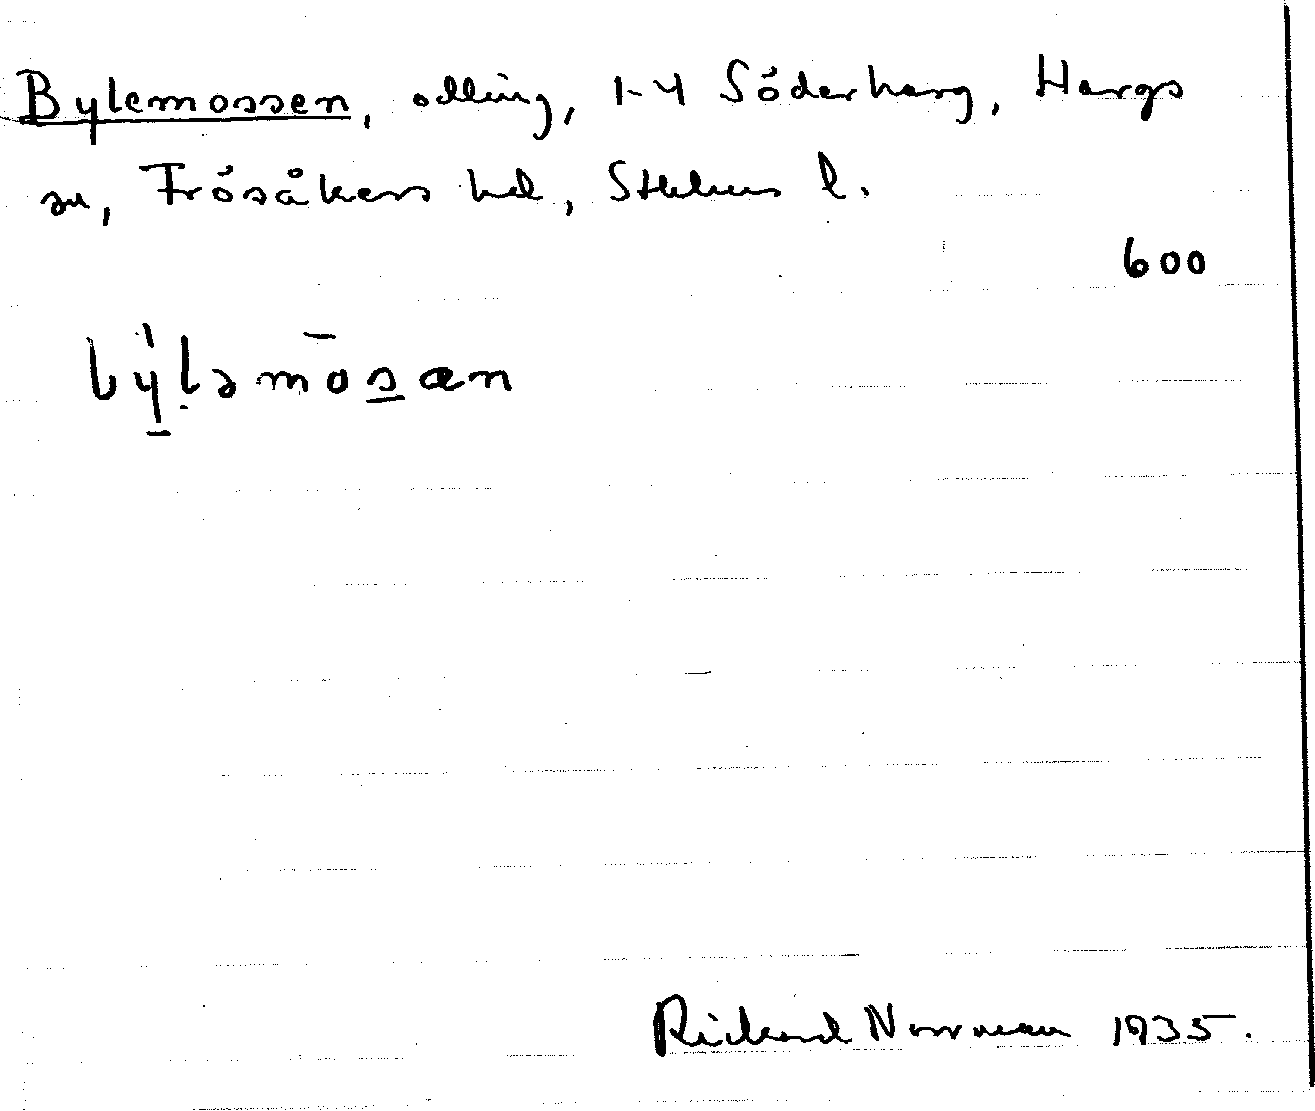 Bylemossen, odling, 1-4 Söderharg, Hargs
sn, Frösåkers hd, Sthlms l.
600
by̠̍ləmo̅s̠æn
Rickard Norrman 1935.